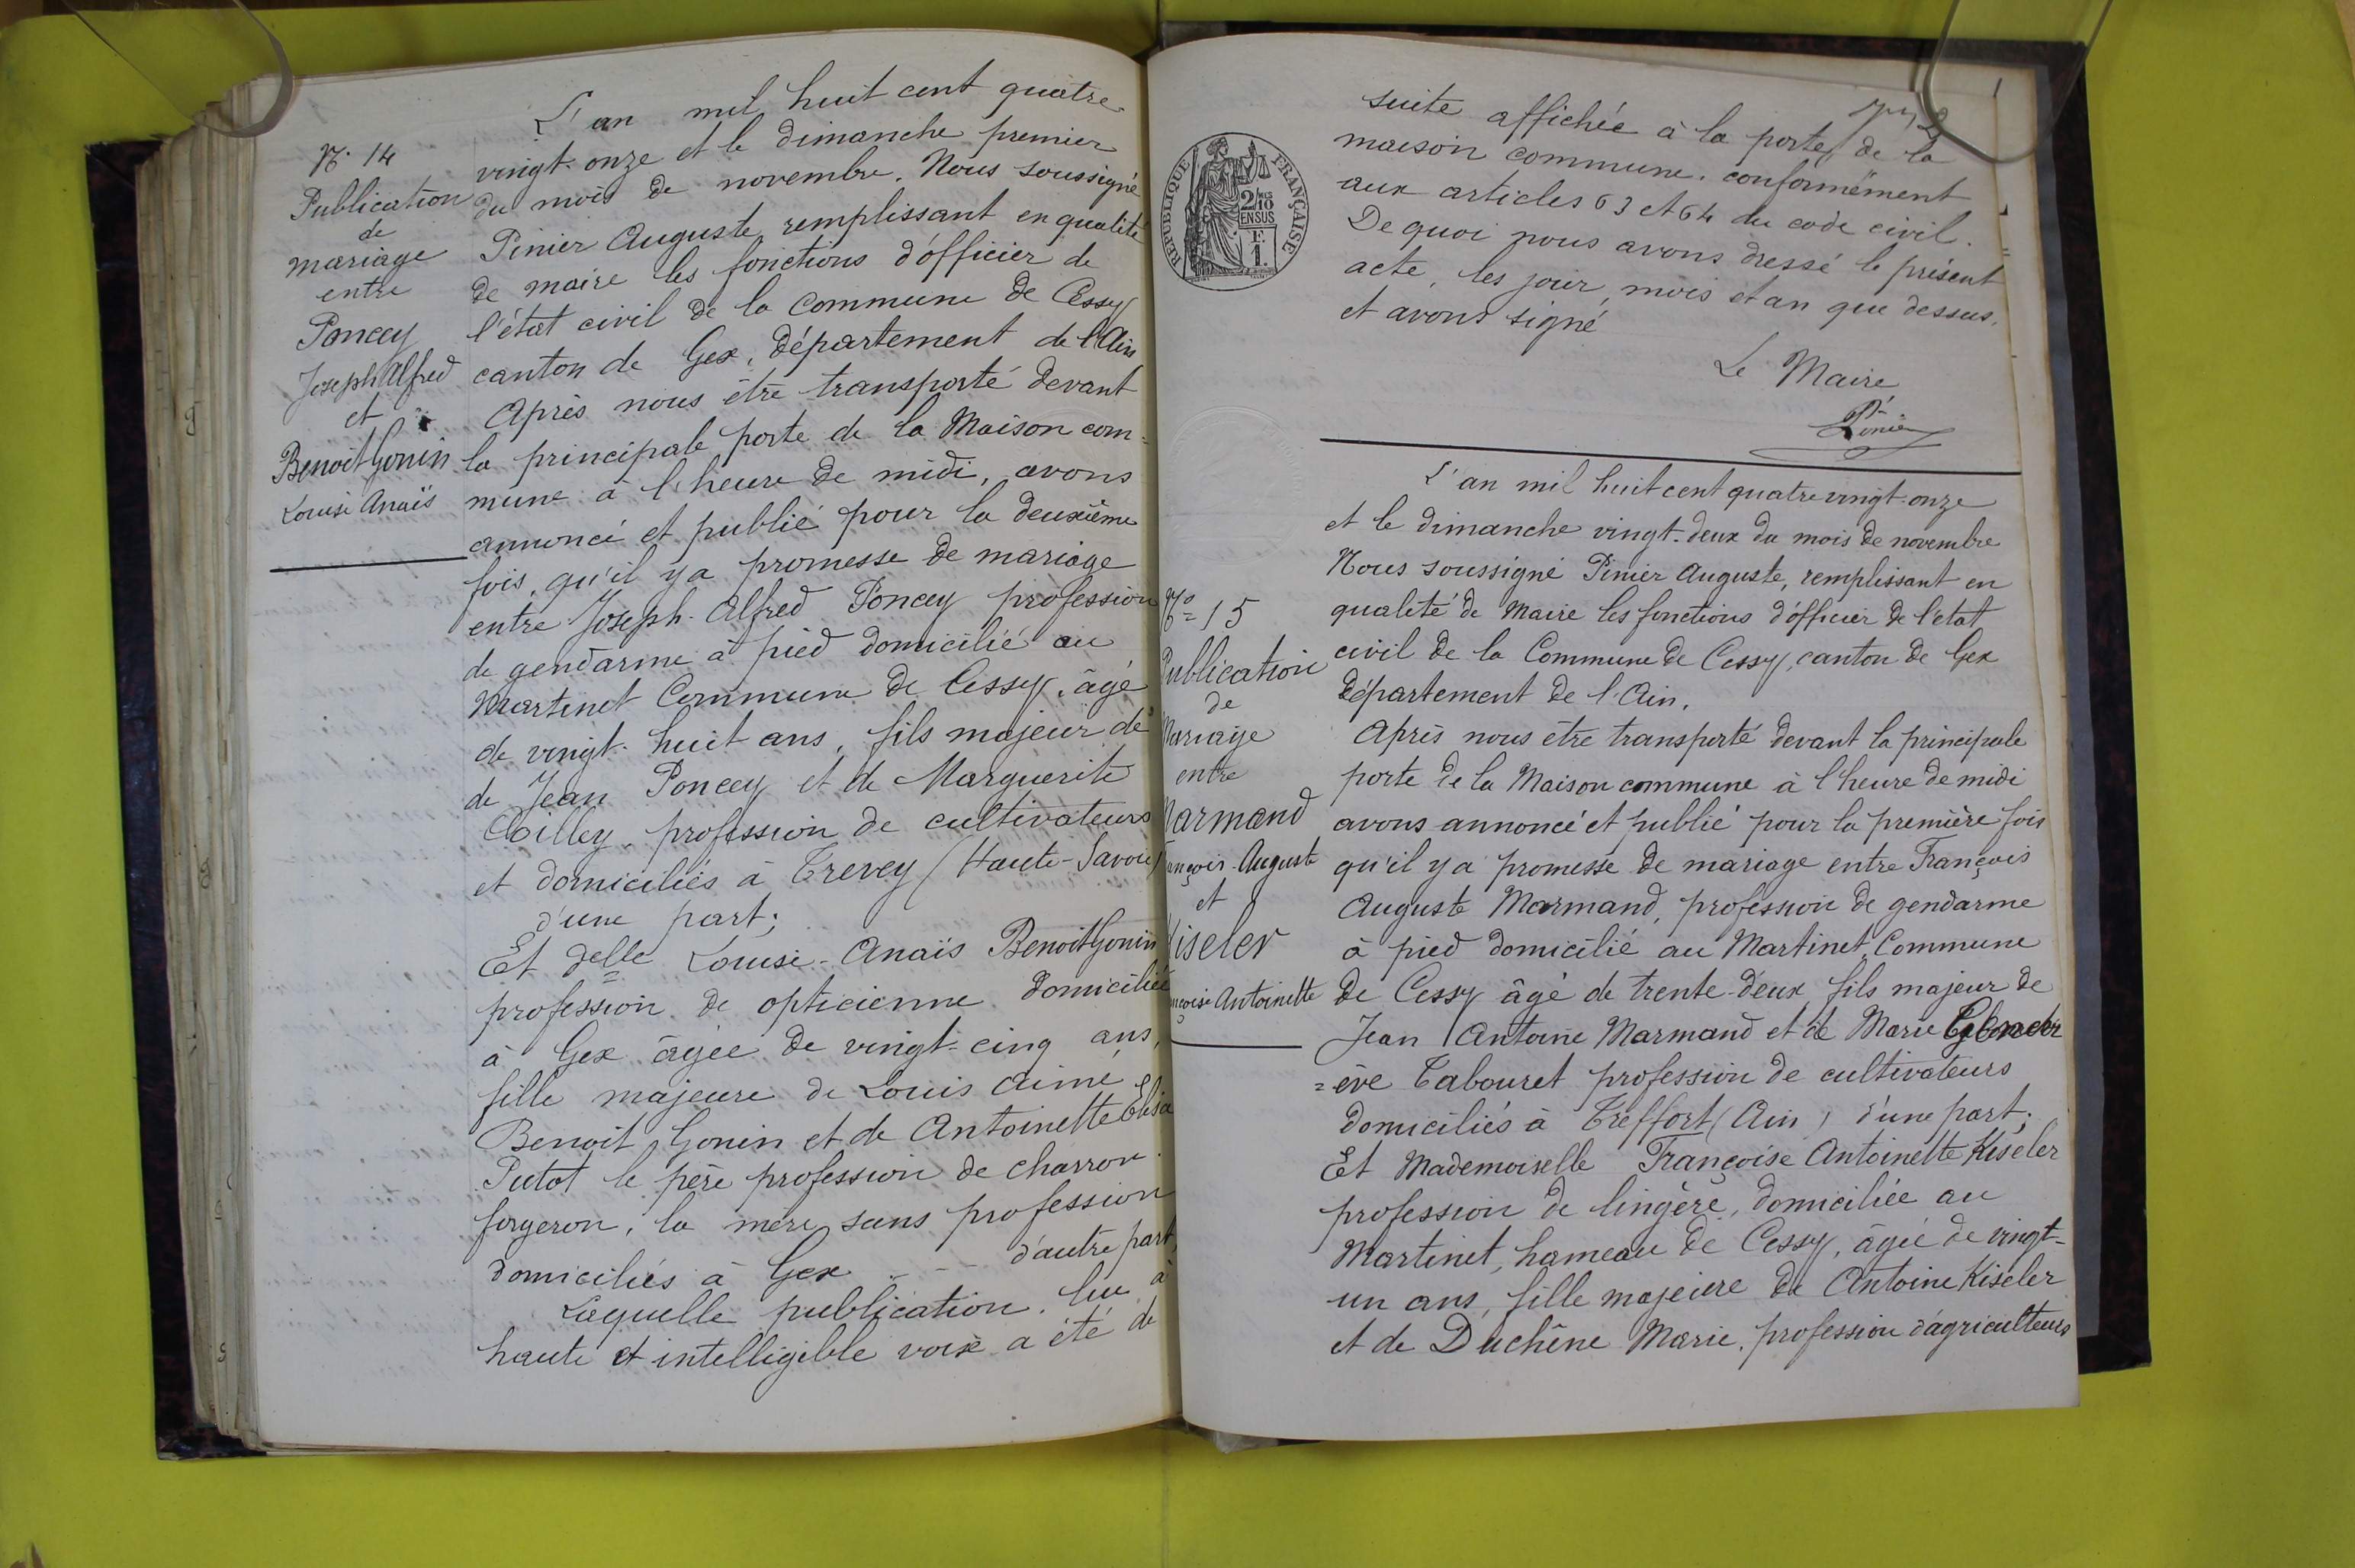 N° 14
Publication
de
mariage
entre
Poncey
Joseph Alfred
et
Benoit Gonin
Louise Anaïs
L'an mil huit cent quatre
vingt-onze et le dimanche premier
du mois de novembre. Nous soussigné
Pinier Auguste remplissant en qualité
de maire les fonctions d'officier de
l'état civil de la Commune de Cessy
canton de Gex, département de l'Ain
Après nous être transporté devant
la principale porte de la Maison com=
mune à l'heure de midi, avons
annoncé et publié pour la deuxième
fois, qu'il y a promesse de mariage
entre Joseph-Alfred Poncey profession
de gendarme à pied domicilié au
Martinet Commune de Cessy, âgé
de vingt-huit ans, fils majeur de
de Jean Poncey et de Marguerite
profession de cultivateurs
et domiciliés à Trevey (Haute-Savoie)
d'une part;
Et delle Louise-Anaïs Benoit Gonin
profession de opticienne domiciliée
à Gex âgée de vingt-cinq ans,
fille majeure de Louis Aimé
Benoit Gonin et de Antoinette Elisa
Putot le père profession de charron
forgeron, la mère sans profession
domiciliés à Gex - - d'autre part,
Laquelle publication, lue à
haute et intelligible voix a été de
suite affichée à la porte de la
maison commune. conformément
aux articles 63 et 64 du code civil.
De quoi nous avons dressé le présent
acte, les jour, mois et an que dessus,
et avons signé
Le Maire
Pinier
RÉPUBLIQUE FRANÇAISE
2/10
EN SUS
F.
1.
N° 15
Publication
de
Mariage
entre
Marmand
François-Auguste
et
Kiseler
Françoise Antoinette
L'an mil huit cent quatre vingt-onze
et le dimanche vingt-deux du mois de novembre
Nous soussigné Pinier Auguste, remplissant en
qualité de Maire les fonctions d'officier de l'état
civil de la Commune de Cessy, canton de Gex
département de l'Ain.
Après nous être transporté devant la principale
porte de la Maison commune à l'heure de midi
avons annoncé et publié pour la première fois
qu'il y a promesse de mariage entre François
Auguste Marmand, profession de gendarme
à pied domicilié au Martinet, Commune
de Cessy âgé de trente-deux, fils majeur de
Jean Antoine Marmand et de Marie
=ève Tabouret profession de cultivateurs
domiciliés à Treffort (Ain) d'une part;
Et Mademoiselle Françoise Antoinette Kiseler
profession de lingère, domiciliée au
Martinet, hameau de Cessy, âgée de vingt-
un ans, fille majeure de Antoine Kiseler
et de Duchêne Marie, profession d'agriculteurs